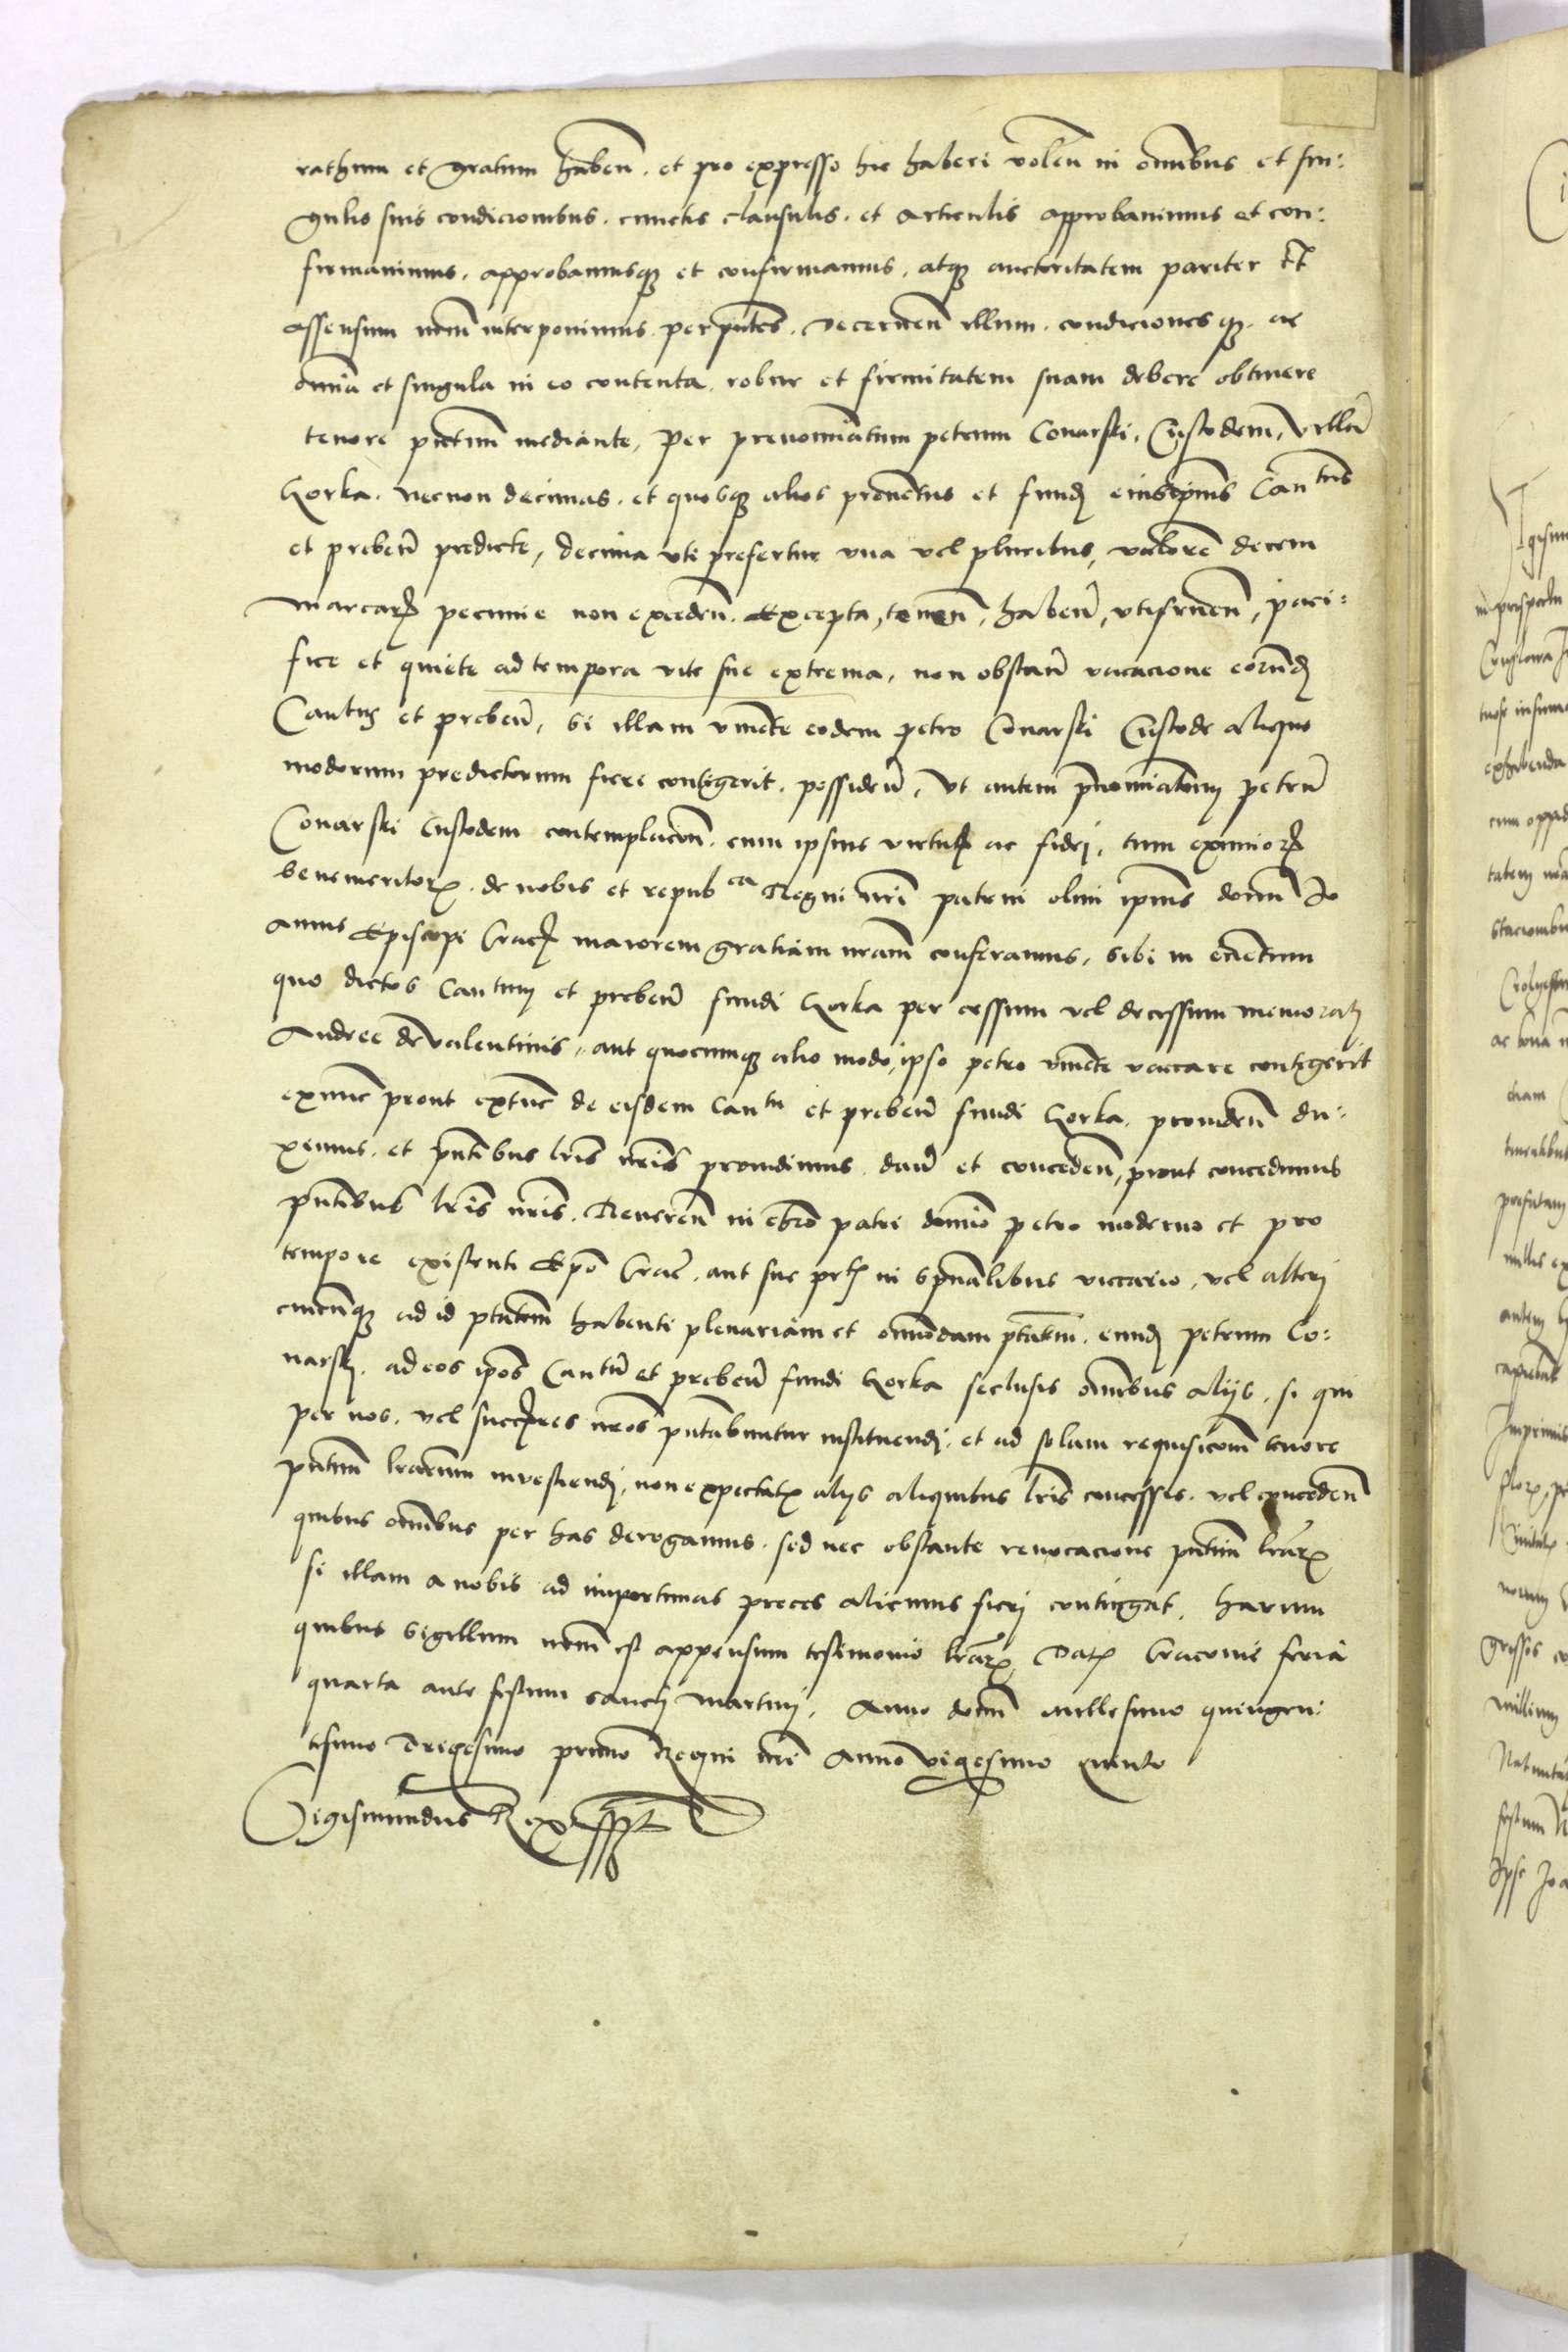 rathum et gratum haben̄. et pro expresso hic haberi volen̄ in omnibus et sin:
gulis suis condicionibus. cunctis clausulis. et articulis approbavimus et con:
firmavimus. approbamusqȝ et confirmamus. atqȝ auctoritatem pariter et
assensum nr̄m interponimus per pn̄tes. decernen̄ illum. condicionesqȝ. ac
omnia et singula in eo contenta. robur et firmitatem suam debere obtinere
tenore pn̄tium mediante, per prenominatum petrum Conarski. Custodem, villā
Gorka. necnon decimas. et quosqȝ alios proventus et fundi eiusdem Cantus
et preben̄ predicte, decima uti prefertur una vel pluribus, valorē decem
marcarȝ pecunie non exceden̄. Excepta, tenen̄, haben̄, utifruen̄, paci:
fice et quiete ad tempora vite sue extrema. non obstan̄ vacacione eorundȝ
Cantus et preben̄, si illam vivente eodem petro Conarski Custode aliquo
modorum predictorum fieri contigerit. possiden̄. Ut autem prenominatum petrū
Conarski Custodem contemplacione. cum ipsius virtutȝ ac fidei. tum eximiorȝ
benemeritorȝ. de nobis et repubca Regni nr̄i patrui olim ipius domini Jo
annis Episcopi Cracȝ maiorem gratiam nram conferamus, sibi in eventum
quo dictos Cantum et preben̄ fundi Gorka per cessum vel decessum memorati
Andree de valentinis, aut quocumqȝ alio modo, ipso petro vivente vaccare contigerit
exnunc prout extunc de eisdem Cantu et preben̄ fundi Gorka. providen̄ du:
ximus. et pn̄tibus lr̄is nr̄is providimus dan̄ et conceden̄, prout concedimus
pn̄tibus lr̄is nr̄is. Reveren̄ in chr̄o patri domino petro moderno et pro
tempore existenti Ep̄o Crac̄. aut sue prtȝ in sp̄ualibus viccario. vel alteri
cuicunqȝ ad id ptatem habenti plenariam et omnīodam ptatem. eundȝ petrum Co:
narski. ad eos ip̄os Cantū et preben̄ fundi Gorka seclusis omnibus aliis. si qui
per nos. vel successores nr̄os pn̄tabuntur instituendi. et ad solam requisicōm tenore
pn̄tium lrarum investiendi, non expectatȝ aliis aliquibus lr̄is concessis. vel conceden̄
quibus omnibus per has derogamus. sed nec obstante revocacione pn̄tium lrarȝ
si illam a nobis ad importunas preces alicuius fieri contingat. harum
quibus sigillum nr̄m est appensum testimonio lrarȝ. Datȝ Cracovie feria
quarta ante festum sancti Martini. Anno domini millesimo quingen:
tesimo Trigesimo primo Regni nr̄i Anno vigesimo quinto
Sigismundus Rex sspt